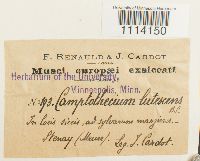 1114150
F. RENAULD & J. CARDOT
Musci europæi exsiccati
Herbarium of the University,
Minneapolis, Minn.
N° 193. Camptothecium lutescens
B.E.
In locis siccis, ad sylvarum margines.—
Stenay (Meuse). Leg. J. Cardot.